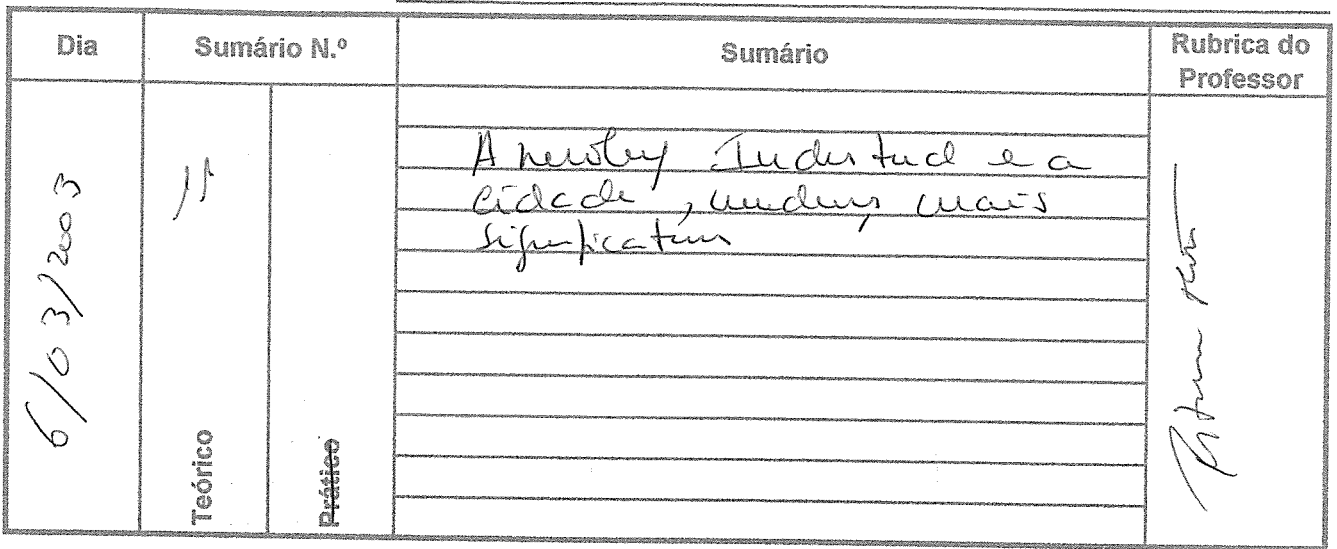 Dia
Sumário N.º
Sumário
Rubrica do
Professor
6/03/2003
11
Teórico
Prático
A revolução Industrial e a
cidade, mudanças mais
significativas